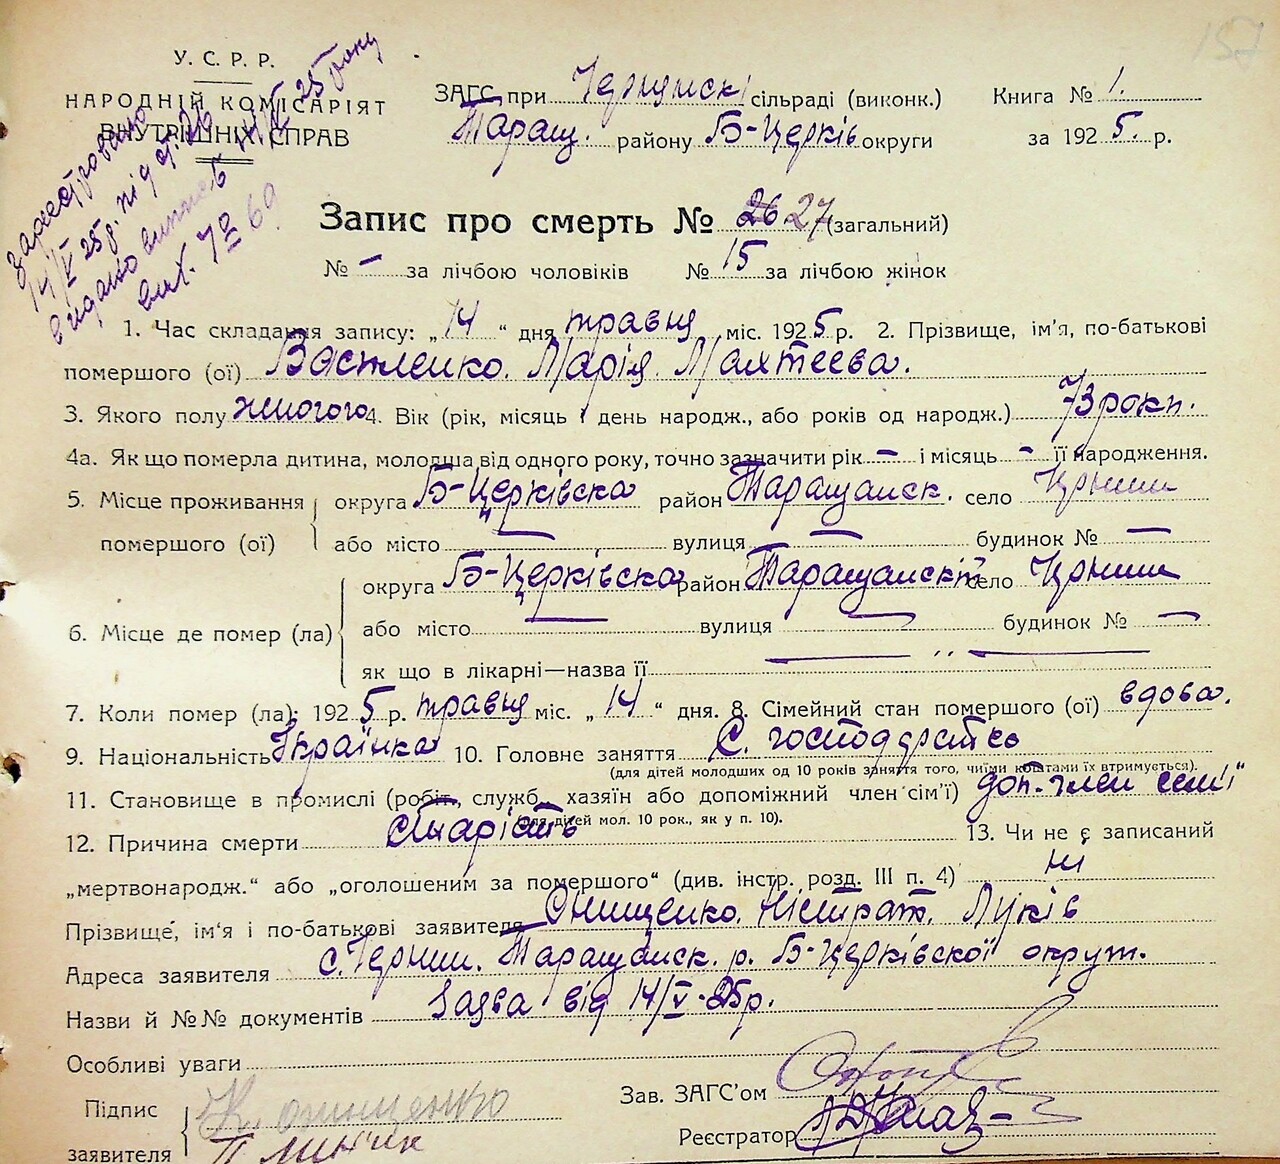 157
У. С. Р. Р.
НАРОДНІЙ КОМІСАРІЯТ
ВНУТРІШНІХ СПРАВ
зареєстровано
14/V 25р. під ч. 26
видано випис 14/V 25 року
вих. 7 69
ЗАГС при Чернинські сільраді (виконк.) Книга № 1.
Таращ. району Б-Церків округи за 1925. р.
Запис про смерть № 26 27 (загальний)
№ – за лічбою чоловіків № 15 за лічбою жінок
1. Час складання запису: „14“ дня травня міс. 1925 р. 2. Прізвище, ім'я, по-батькові
помершого (ої) Василенко. Марія Махтеева.
3. Якого полу жіночого 4. Вік (рік, місяць і день народж., або років од народж.) 73 роки.
4а. Як що померла дитина, молодша від одного року, точно зазначити рік – і місяць – її народження.
5. Місце проживання округа Б-Церківска район Таращанск. село Чернин
помершого (ої) або місто — вулиця — будинок № —
округа Б-Церківска район Таращанскій село Чернин
6. Місце де помер (ла) або місто — вулиця — будинок № —
як що в лікарні—назва її — „ —
7. Коли помер (ла): 1925 р. травня міс. „14“ дня. 8. Сімейний стан помершого (ої) вдова.
9. Національність Українка 10. Головне заняття С. господарство
(для дітей молодших од 10 років заняття того, чиїми коштами їх втримується).
11. Становище в промислі (робіт., служб., хазяїн або допоміжний член сім'ї) доп. член семї
(для дітей мол. 10 рок., як у п. 10).
12. Причина смерти Старість 13. Чи не є записаний
„мертвонародж.“ або „оголошеним за помершого“ (див. інстр. розд. III п. 4) ні
Прізвище, ім'я і по-батькові заявителя Онищенко. Кістрат. Луків
Адреса заявителя с. Чернин. Таращанск. р. Б-Церківскої округ.
Назви й №№ документів Заява від 14/V-25р.
Особливі уваги
Зав. ЗАГС'ом
Підпис К. Онищенко
Реєстратор
заявителя